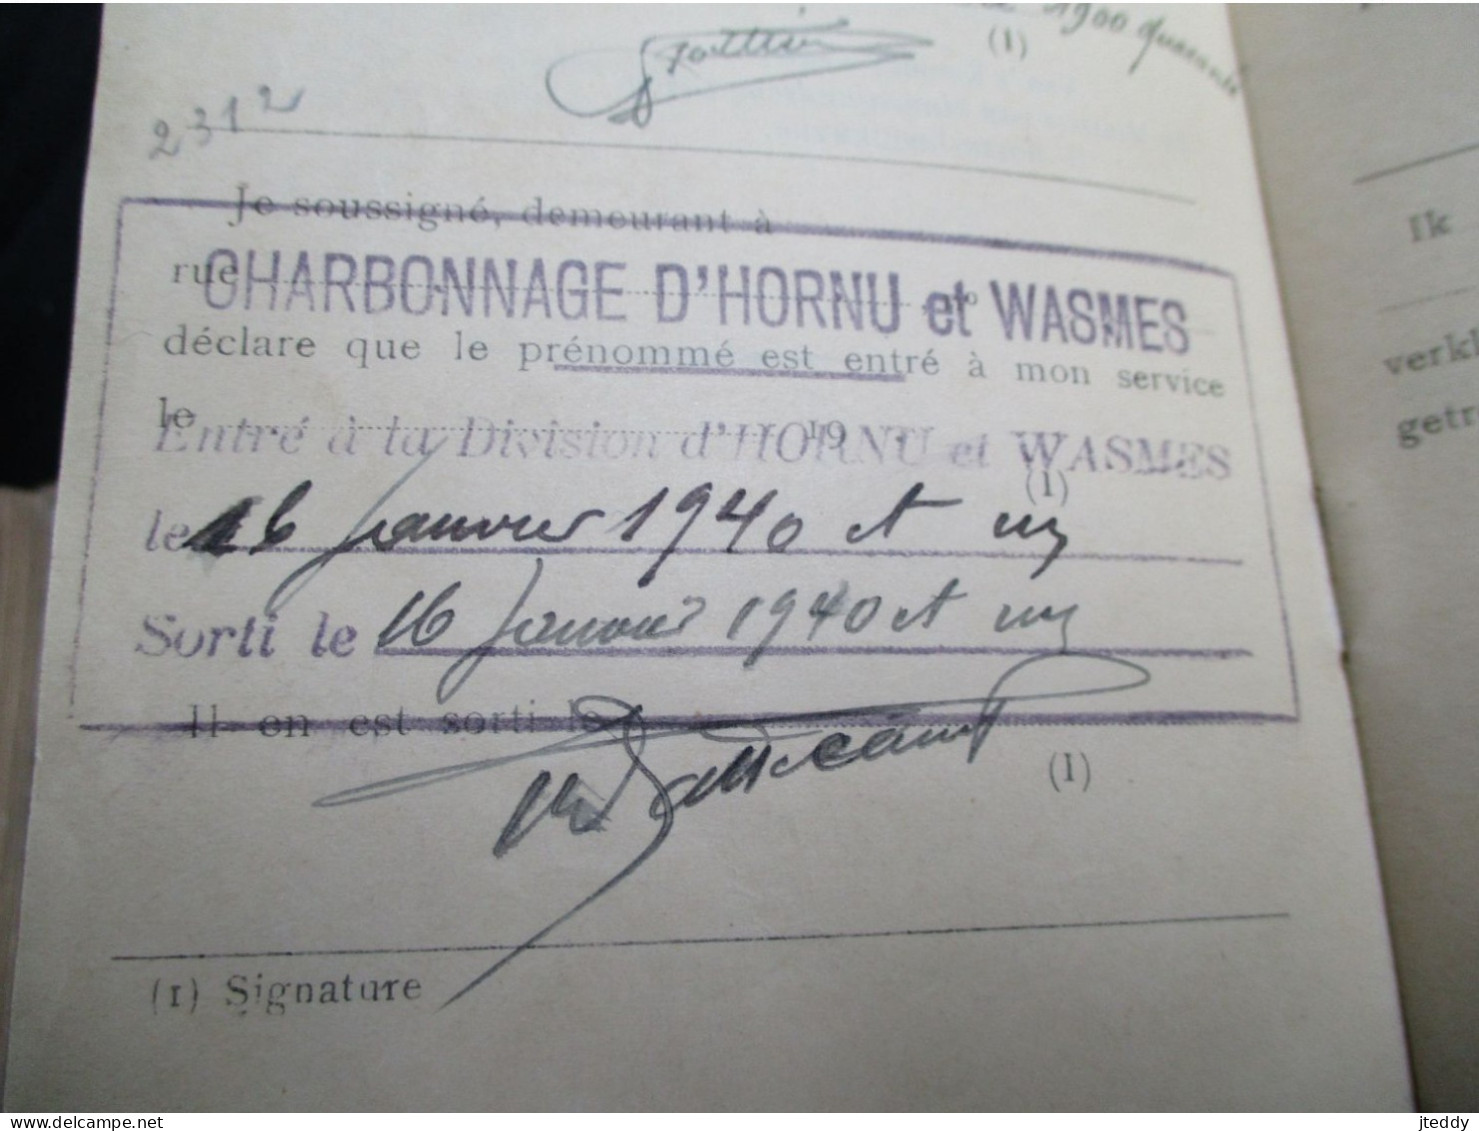 1900 quarante
(1)
2312
Je soussigné, demeurant à
rue
CHARBONNAGE D'HORNU et WASMES
déclare que le prénommé est entré à mon service
le 19
Entré à la Division d'HORNU et WASMES
(1)
le 16 janvier 1940 et un
Sorti le 16 janvier 1940 et un
Il en est sorti le
(1)
(1) Signature
Ik
verkl
getr
jteddy